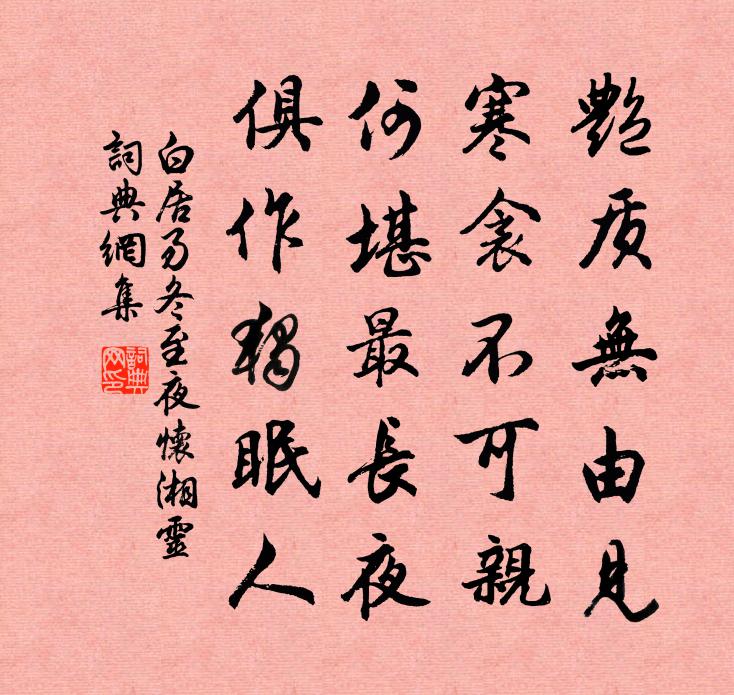 艷质無由見
寒衾不可親
何堪最長夜
俱作獨眠人
白居易冬至夜懷湘靈
詞典網集
詞典網印